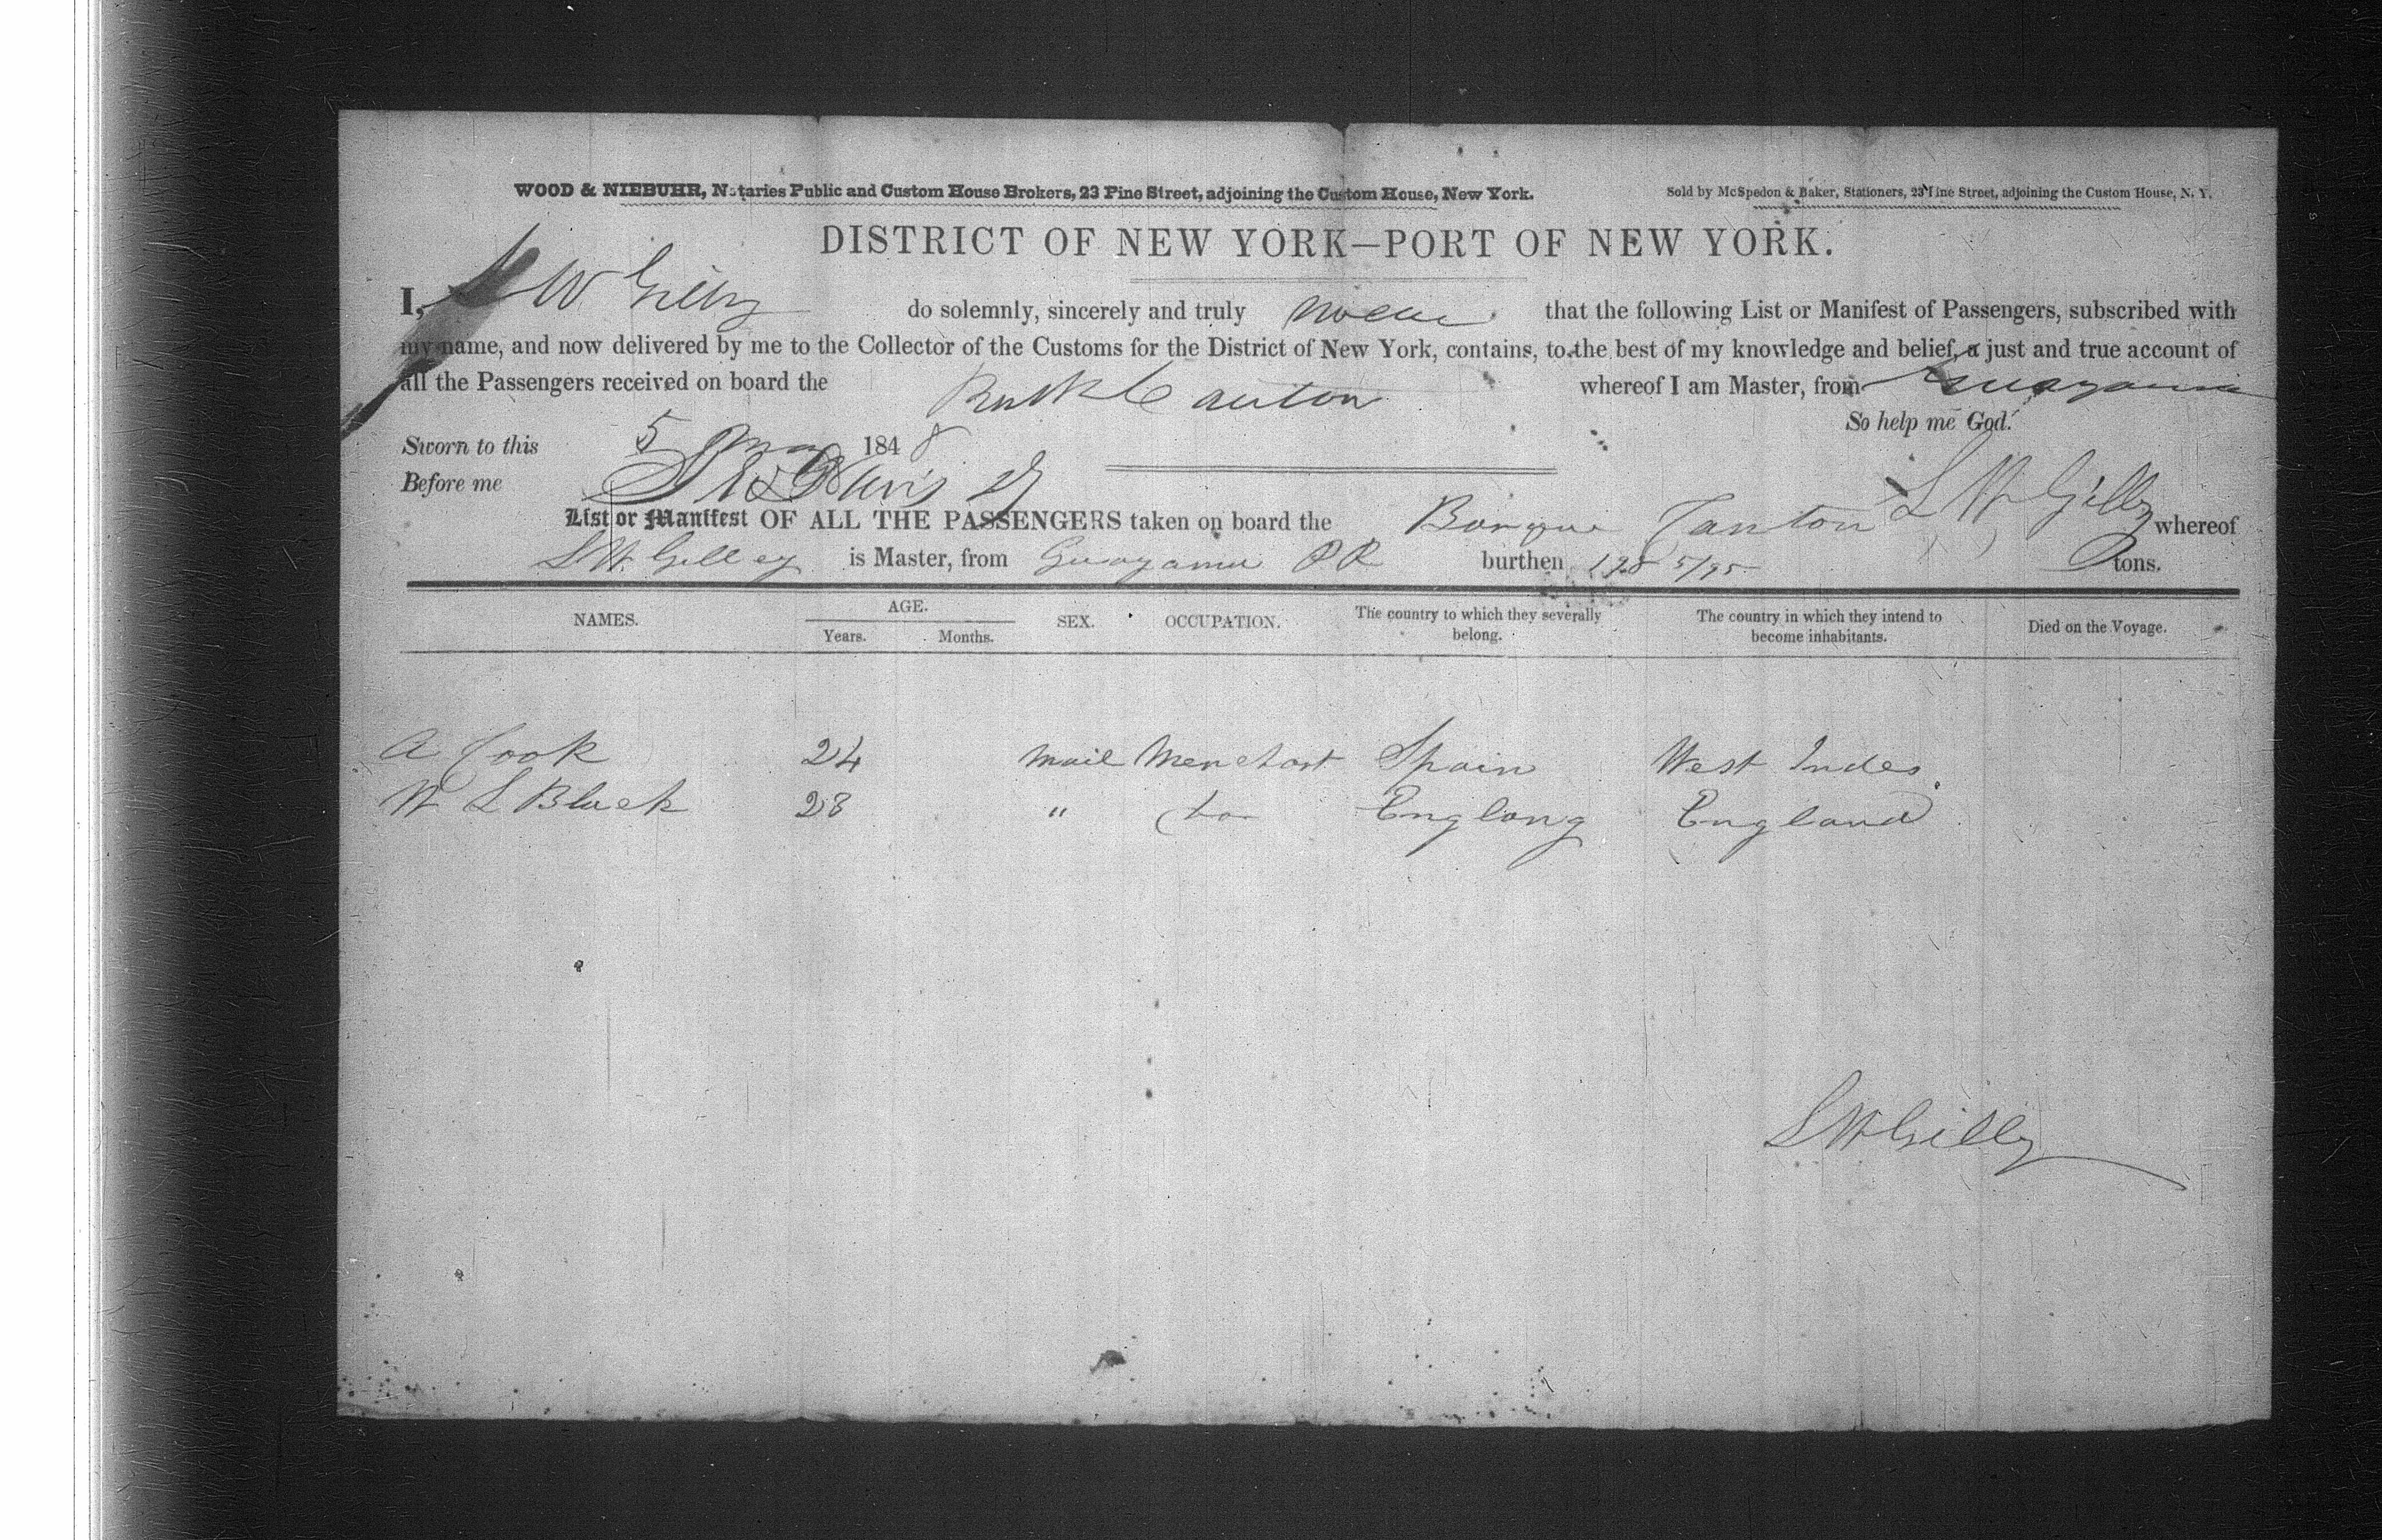 WOOD & NIEBUHR, Notaries Public and Custom House Brokers, 23 Pine Street, adjoining the Custom House, New York.
Sold by McSpedon & Baker, Stationers, 23 Pine Street, adjoining the Custom House, N. Y.
DISTRICT OF NEW YORK—PORT OF NEW YORK.
I, W Gilley do solemnly, sincerely and truly swear that the following List or Manifest of Passengers, subscribed with
my name, and now delivered by me to the Collector of the Customs for the District of New York, contains, to the best of my knowledge and belief, a just and true account of
all the Passengers received on board the Bark Canton whereof I am Master, from Guayama
So help me God.
Sworn to this 5 May 1848
Before me L W Gilley
List or Manifest OF ALL THE PASSENGERS taken on board the Barque Canton whereof
L W Gilley is Master, from Guayama P R burthen 198 5/95 tons.
NAMES. AGE. SEX. OCCUPATION. The country to which they severally belong. The country in which they intend to become inhabitants. Died on the Voyage.
Years. Months.
A Cook 24 mail Merchant Spain West Indes
W L Black 28 " do England England
L W Gilley